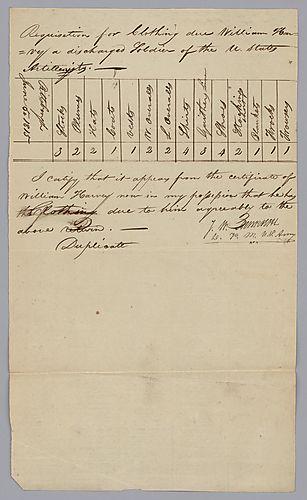 Requisition for Clothing due William Har-
=vey a discharged Soldier of the U States
Artillery
Pittsburgh
June 26 1815
Stocks 3
Shoes 2
Hats 2
Coats 1
Vests 1
W. Overalls 2
L. Overalls 2
Shirts 4
3
Shoes 4
Stockings 2
Blanket 1
Frocks 1
Trowsers 1
I certify that it appears from the certificate of
William Harvey now in my possession that he has
the Clothing due to him agreeable to the
above return. —
Duplicate
J. W.
D. Q. M. U.S. Army